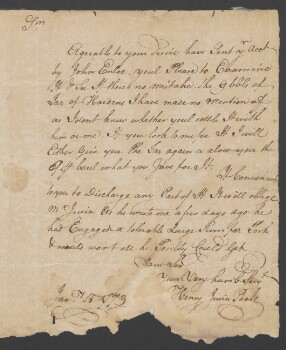 Sir
Agreable to your desire have Sent yr Acct
by John Enloe, youl Please to Examine
it & See If theres no mistake. the 6 bbls of
Tar of Hardens I have made no mention of
as I dont know whether youl settle it with
him or me If you look to me for It I will
Either Give you the Tar again or alow you the
for It. If Convenient
to you to Discharge any Part of It It will oblige
Mr Irwin As he wrote me a few days ago he
had Engaged a tolerable Large Sum for Pork
& would want all he Possibly Could Get
I am Sir
Your Very humble Servt
Henry Irwin Toole